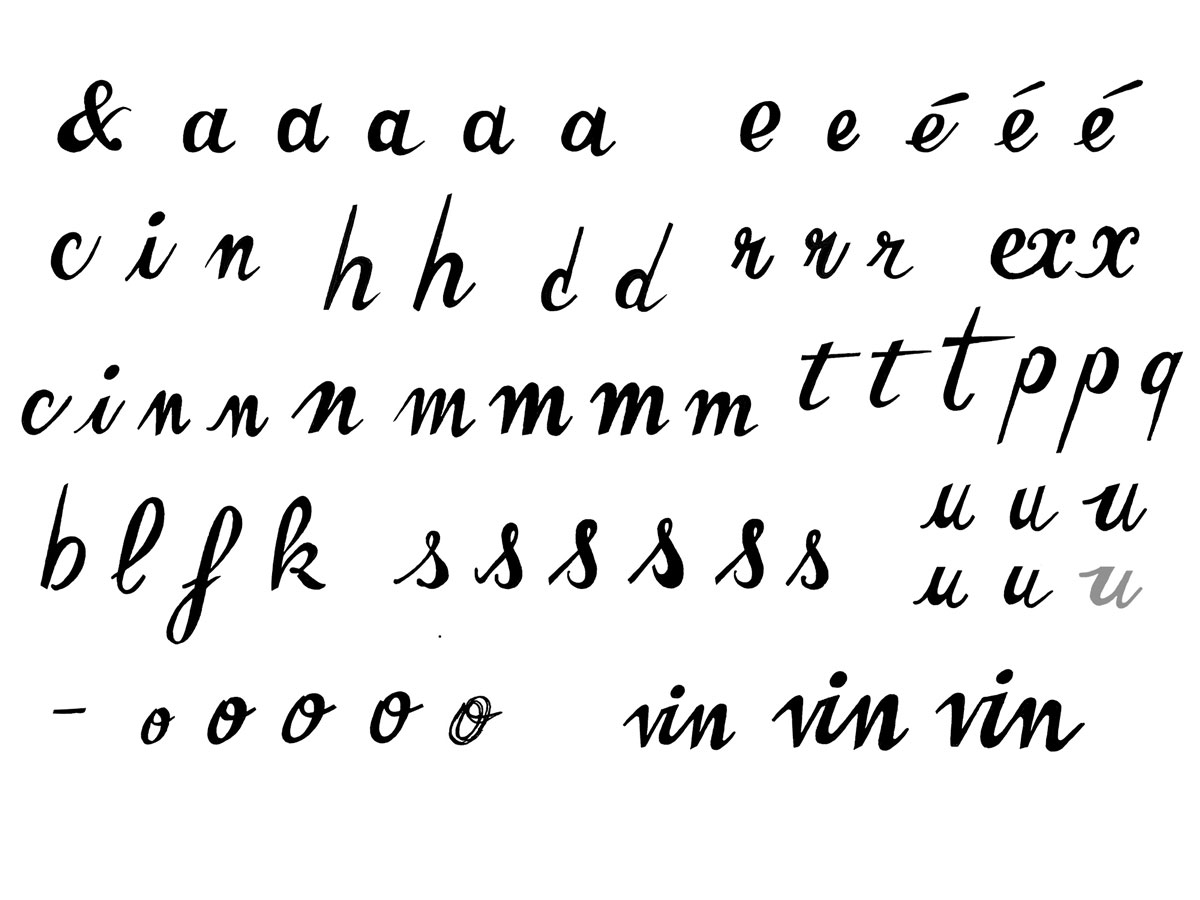 & a a a a a e e é é é
c i n h h d d r r r ex x
c i n n n m m m m t t t p p q
b l f k s s s s s s u u u
u u u
- o o o o o vin vin vin